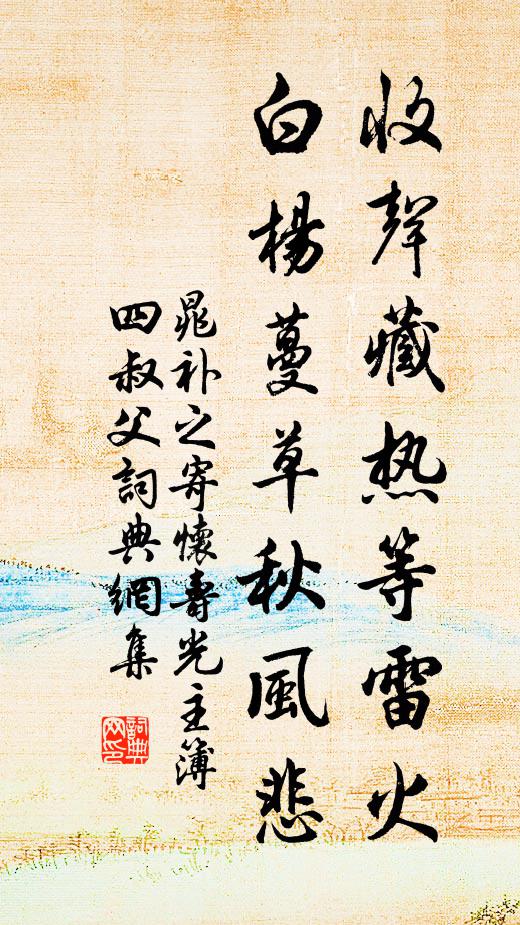 收聲藏热等雷火
白楊蔓草秋風悲
晁补之寄懷壽光主簿
四叔父詞典網集
詞典
网印